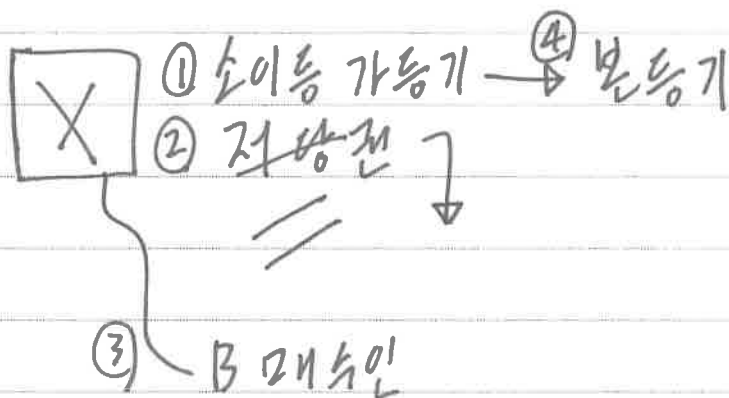 X ① 소이등 가등기 → ④ 본등기
② 저당권
③ B 매수인